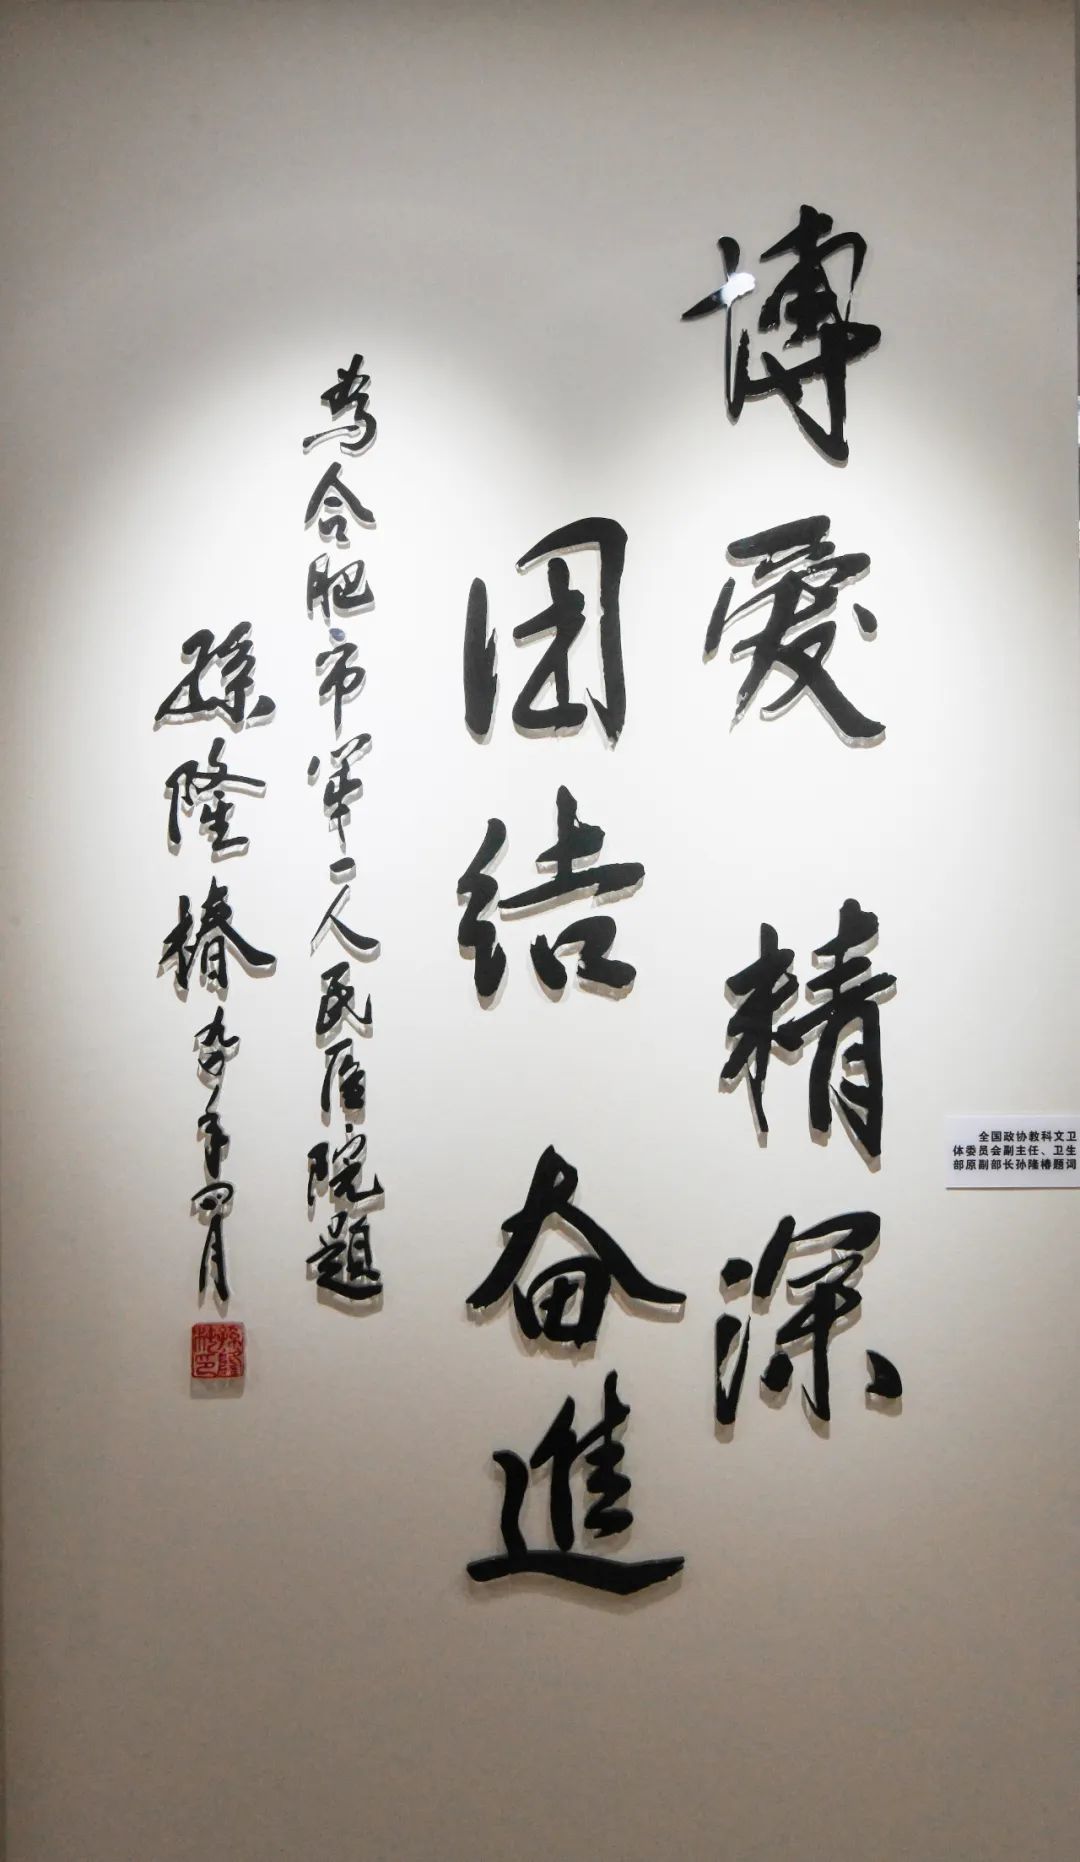 博愛精深
团结奋進
為合肥市第一人民医院題
孫隆椿 年四月
孫隆椿印
全国政协教科文卫
体委员会副主任、卫生
部原副部长孙隆椿题词